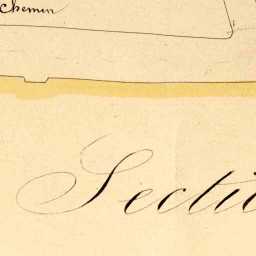 Chemin
Secti